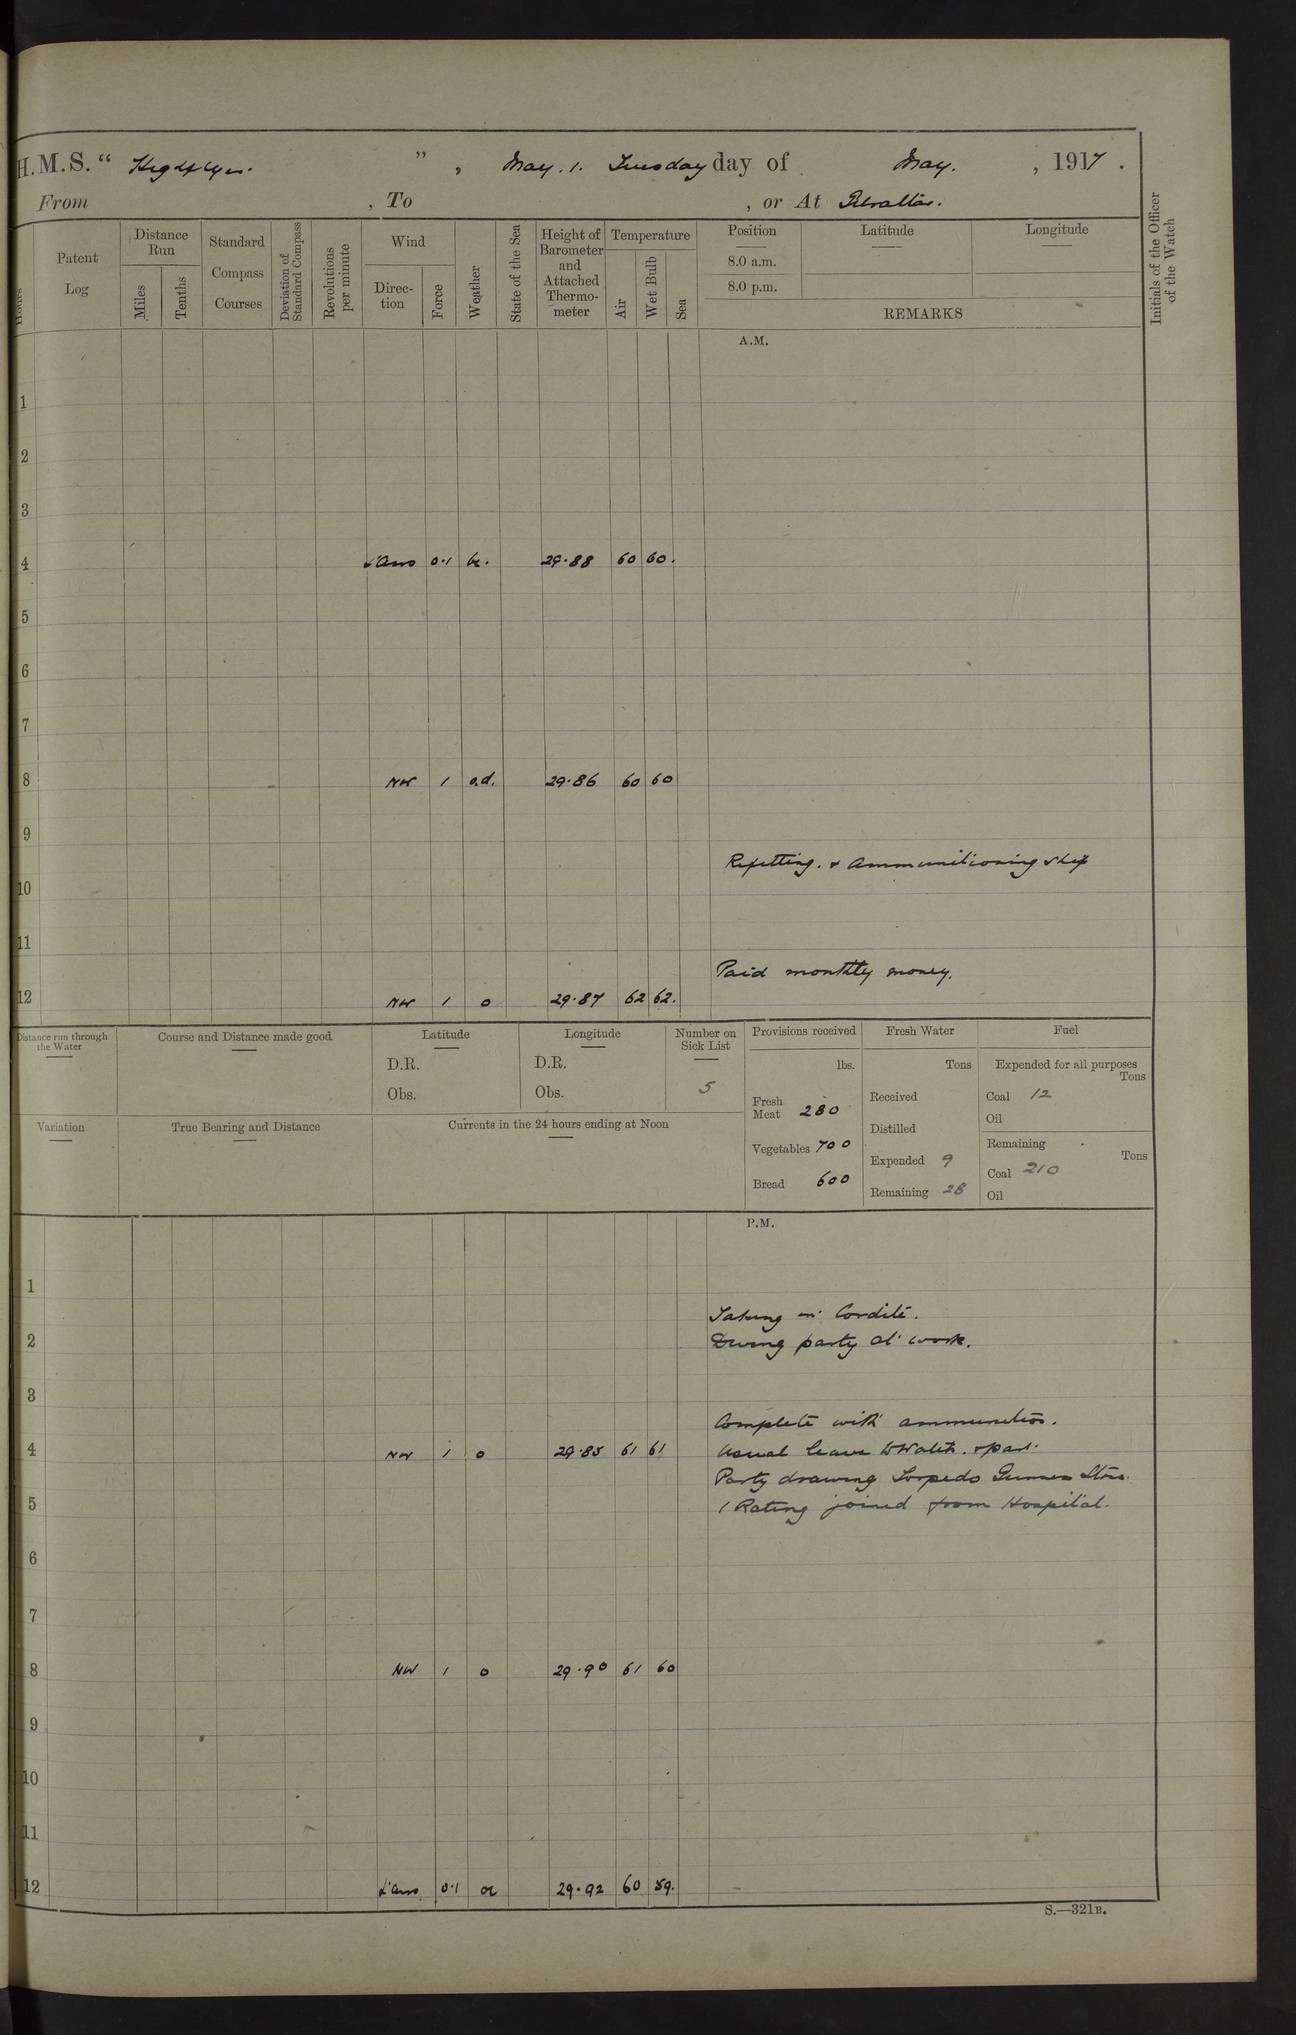 H.M.S. “ Highflyer. ” , May. 1. Tuesday day of May. , 1917 .
From , To , or At Gibraltar.
Hours
Patent Log
Distance Run
Miles
Tenths
Standard Compass Courses
Deviation of Standard Compass
Revolutions per minute
Wind
Direction
Force
Weather
State of the Sea
Height of Barometer and Attached Thermometer
Temperature
Air
Wet Bulb
Sea
Position
8.0 a.m.
8.0 p.m.
Latitude
Longitude
REMARKS
Initials of the Officer of the Watch
A.M.
1
2
3
4 0.1 bc. 29.88 60 60.
5
6
7
8 NW 1 o.d. 29.86 60 60
9
Refitting. & Ammunitioning ship
10
11
Paid monthly money.
12 NW 1 o 29.87 62 62.
Distance run through the Water
Course and Distance made good
Latitude
D.R.
Obs.
Longitude
D.R.
Obs.
Number on Sick List
5
Provisions received
lbs.
Fresh Meat 280
Vegetables 700
Bread 600
Fresh Water
Tons
Received
Distilled
Expended 9
Remaining 28
Fuel
Expended for all purposes
Tons
Coal 12
Oil
Remaining
Tons
Coal 210
Oil
Variation
True Bearing and Distance
Currents in the 24 hours ending at Noon
P.M.
1
Taking in Cordite.
2 Diving party at work.
3
Complete with ammunition.
4 NW 1 o 29.85 61 61 Usual leave to Watch. & part.
Party drawing Torpedo Gunners Stores.
5 1 Rating joined from Hospital.
6
7
8 NW 1 o 29.90 61 60
9
10
11
12 0.1 oc 29.92 60 59.
S.—321B.